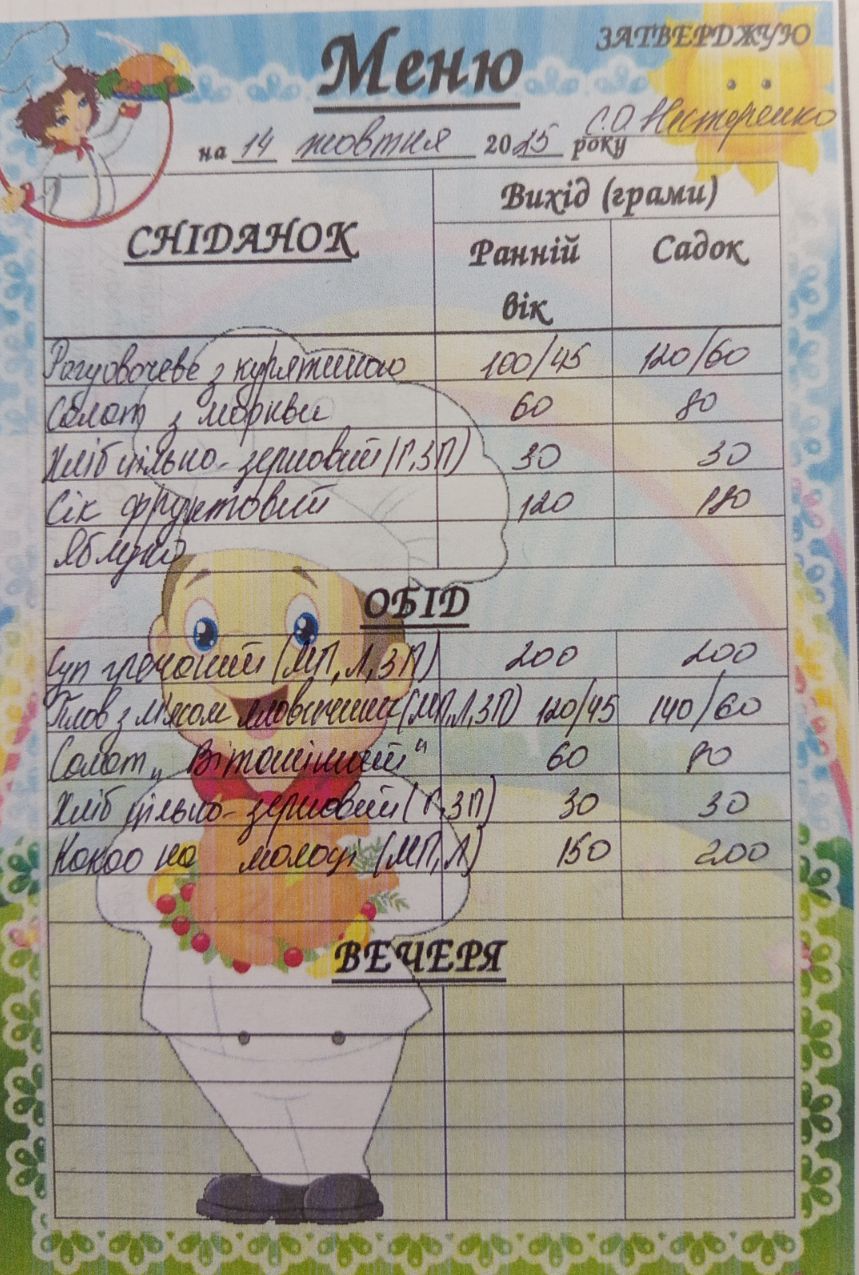 ЗАТВЕРДЖУЮ
Меню
С.О. Нестеренко
на 14 жовтня 2025 року
СНІДАНОК
Вихід (грами)
Ранній вік
Садок
Рагу овочеве з курятиною 100/45 120/60
Салат з моркви 60 80
Хліб цільно-зерновий (Г,ЗП) 30 30
Сік фруктовий 120 180
Яблуко
ОБІД
Суп гречаний (МП,Л,ЗП) 200 200
Плов з м'ясом яловичини (МП,Л,ЗП) 120/45 140/60
Салат „Вітамінний" 60 80
Хліб цільно-зерновий (Г,ЗП) 30 30
Какао на молоці (МП,Л) 150 200
ВЕЧЕРЯ